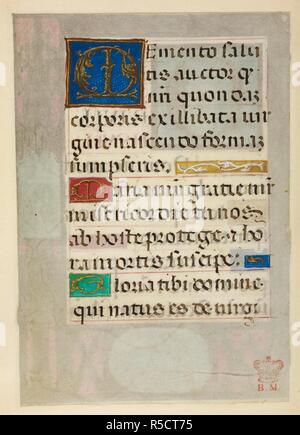 Memento salu
tis auctor q
nr̄i quondaz
corporis ex illibata vir
gine nascendo formaz
sumpseris.
Maria mr̄ gratie mr̄
misericordie tu nos
ab hoste protege ⁊ ho
ra mortis suscipe:
Gloria tibi domine
qui natus es de virgi
B. M.